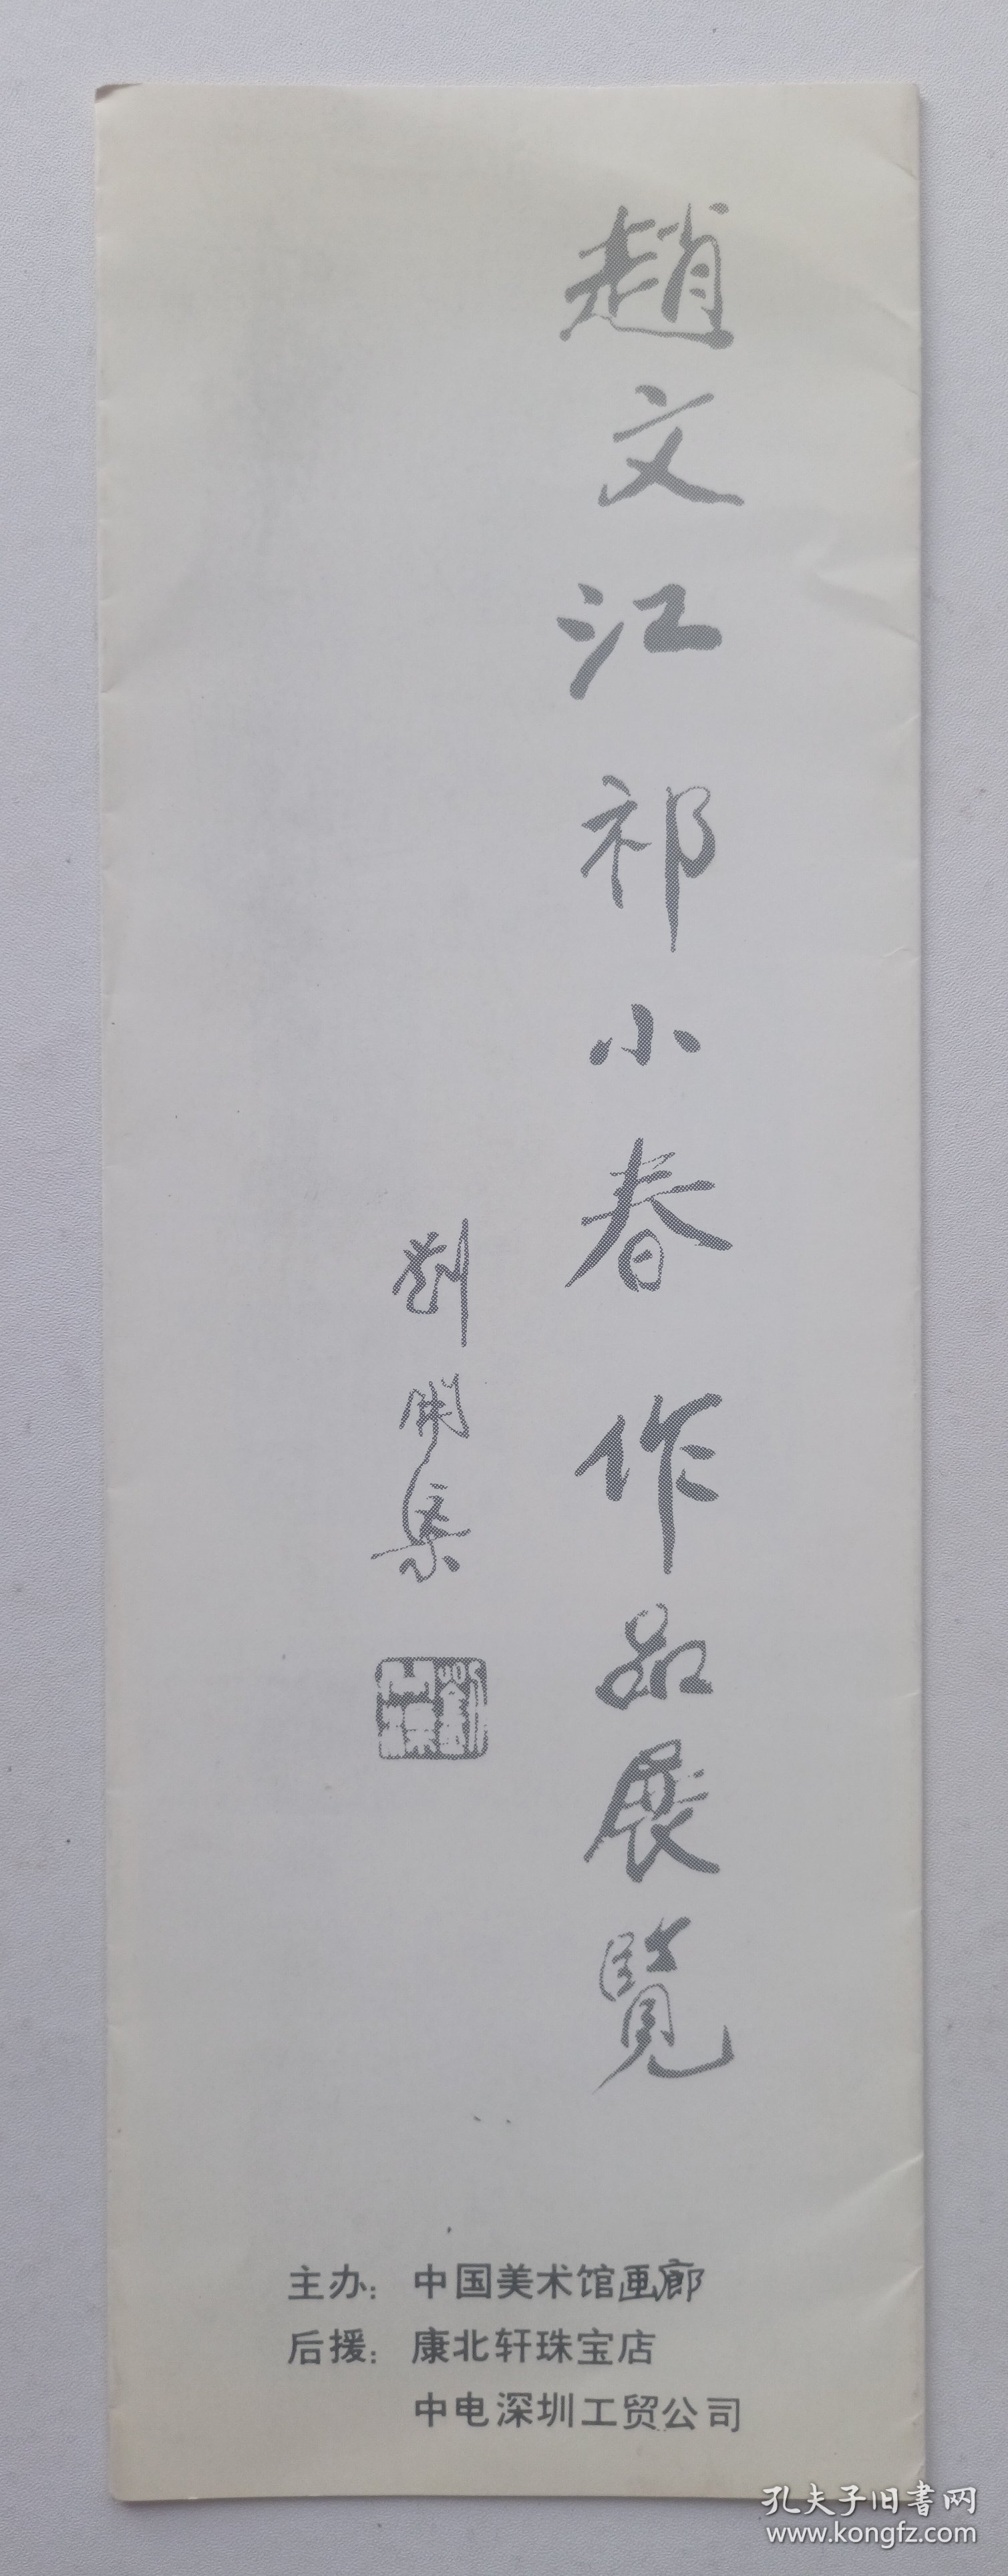 趙文江祁小春作品展覽
劉開渠
主办：中国美术馆画廊
后援：康北轩珠宝店
中电深圳工贸公司
孔夫子旧書网
www.kongfz.com